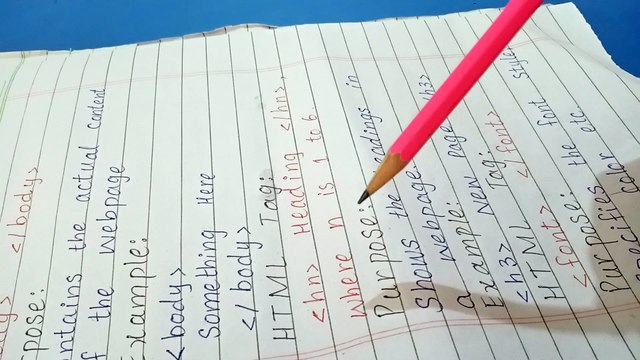 </body>
pose:
ntains the actual content
f the webpage
Example:
<body>
Something Here
</body>
HTML Tag:
<hn> Heading </hn>
where n is 1 to 6.
Purpose: eadings in
Shows the
a webpage.
Example:
<h3> New page </h3>
HTML Tag:
<font> </font>
Purpose: the font style
Specifies etc.
color